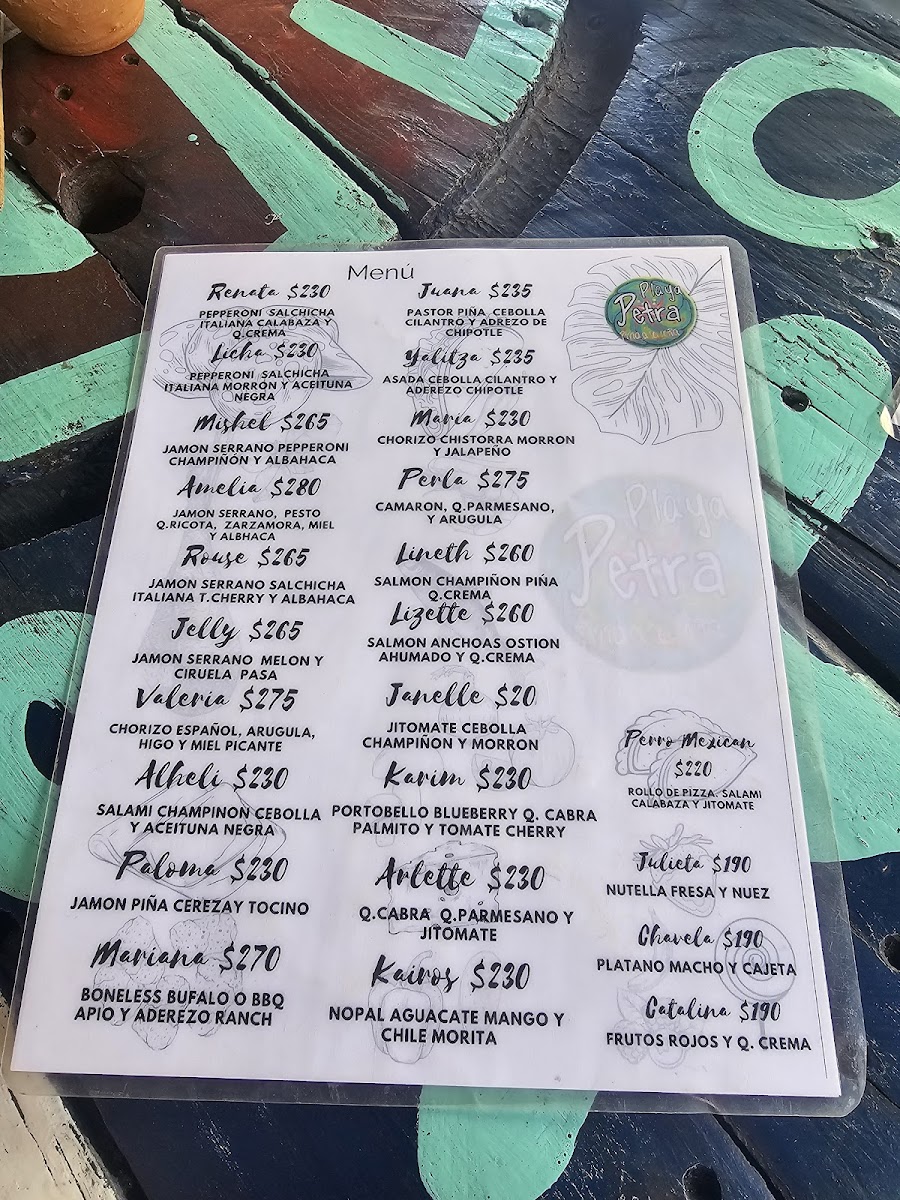 Menú
Renata $230
PEPPERONI SALCHICHA
ITALIANA CALABAZA Y
Q.CREMA
Licha $230
PEPPERONI SALCHICHA
ITALIANA MORRON Y ACEITUNA
NEGRA
Mishel $265
JAMON SERRANO PEPPERONI
CHAMPIÑÓN Y ALBAHACA
Amelia $280
JAMON SERRANO, PESTO
Q.RICOTA, ZARZAMORA, MIEL
Y ALBHACA
Rouse $265
JAMON SERRANO SALCHICHA
ITALIANA T.CHERRY Y ALBAHACA
Jelly $265
JAMON SERRANO MELON Y
CIRUELA PASA
Valeria $275
CHORIZO ESPAÑOL, ARUGULA,
HIGO Y MIEL PICANTE
Alheli $230
SALAMI CHAMPINON CEBOLLA
Y ACEITUNA NEGRA
Paloma $230
JAMON PIÑA CEREZAY TOCINO
Mariana $270
BONELESS BUFALO O BBQ
APIO Y ADEREZO RANCH
Juana $235
PASTOR PIÑA CEBOLLA
CILANTRO Y ADREZO DE
CHIPOTLE
Yalitza $235
ASADA CEBOLLA CILANTRO Y
ADEREZO CHIPOTLE
Maria $230
CHORIZO CHISTORRA MORRON
Y JALAPEÑO
Perla $275
CAMARON, Q.PARMESANO,
Y ARUGULA
Lineth $260
SALMON CHAMPIÑON PIÑA
Q.CREMA
Lizette $260
SALMON ANCHOAS OSTION
AHUMADO Y Q.CREMA
Janelle $20
JITOMATE CEBOLLA
CHAMPIÑON Y MORRON
Karim $230
PORTOBELLO BLUEBERRY Q. CABRA
PALMITO Y TOMATE CHERRY
Arlette $230
Q.CABRA Q.PARMESANO Y
JITOMATE
Kairos $230
NOPAL AGUACATE MANGO Y
CHILE MORITA
Playa
Petra
Playa
Petra
Perro Mexican
$220
ROLLO DE PIZZA, SALAMI
CALABAZA Y JITOMATE
Julieta $190
NUTELLA FRESA Y NUEZ
Chavela $190
PLATANO MACHO Y CAJETA
Catalina $190
FRUTOS ROJOS Y Q. CREMA